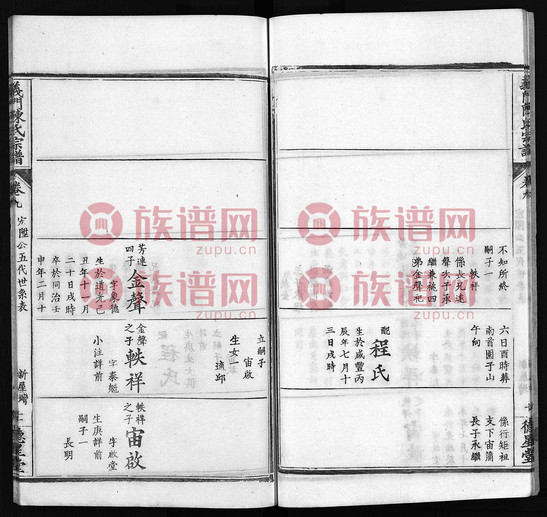 不知所終
嗣子一
軼祥
係長兄連
聲次子承
繼兼祧四
弟金聲祀
配程氏
生於咸豐丙
辰年七月十
三日戌時
六日酉時葬
南首團子山
午向
係行矩祖
支下宙蒲
長子承繼
德星堂
義門陳氏宗譜
卷九
宏陞公五代世系表
新屋灣
德星堂
芳連四子金聲
字象德
生於道光己
丑年十一月
二十日戌時
卒於同治壬
申年二月十
金聲之子軼祥
字泰魁
小注詳前
立嗣子
宙啟
生女一
適邱
軼祥之子宙啟
字啟堂
生庚詳前
嗣子一
長明
族谱网
zupu.cn
族谱网
zupu.cn
族谱网
zupu.cn
族谱网
zupu.cn